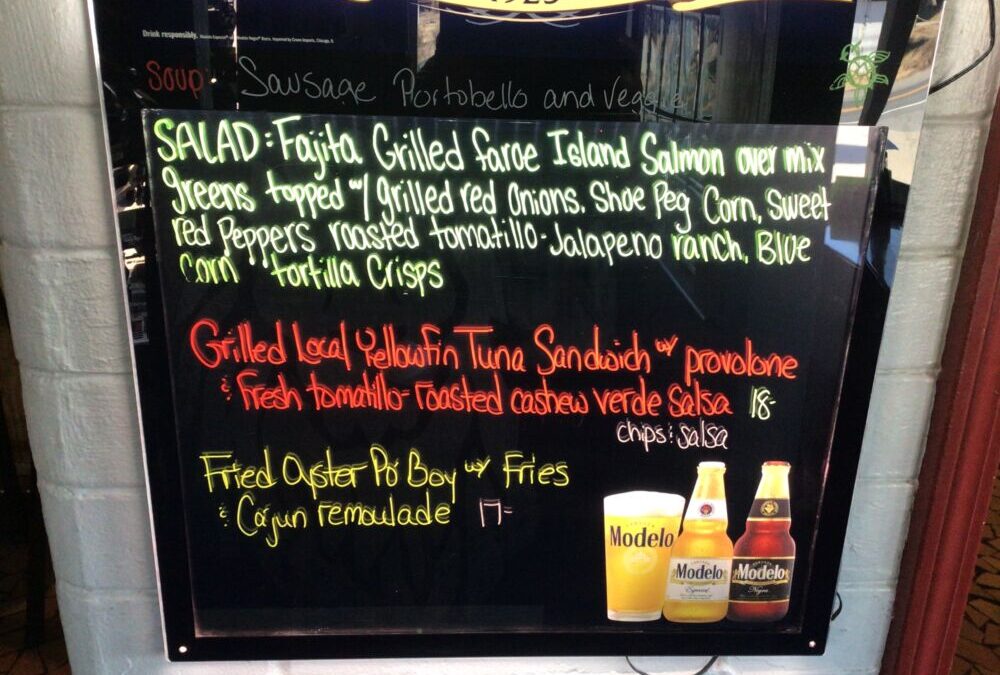 1925
Drink responsibly.
Soup: Sausage Portobello and Veggie
SALAD: Fajita Grilled faroe Island Salmon over mix
greens topped w/ grilled red onions. Shoe Peg Corn, Sweet
red Peppers roasted tomatillo-Jalapeno ranch, Blue
Corn tortilla Crisps
Grilled Local Yellowfin Tuna Sandwich w/ provolone
& Fresh tomatillo-roasted cashew verde Salsa 18-
chips & salsa
Fried Oyster Po Boy w/ Fries
& Cajun remoulade 17-
Modelo
Modelo
Especial
Modelo
Negra